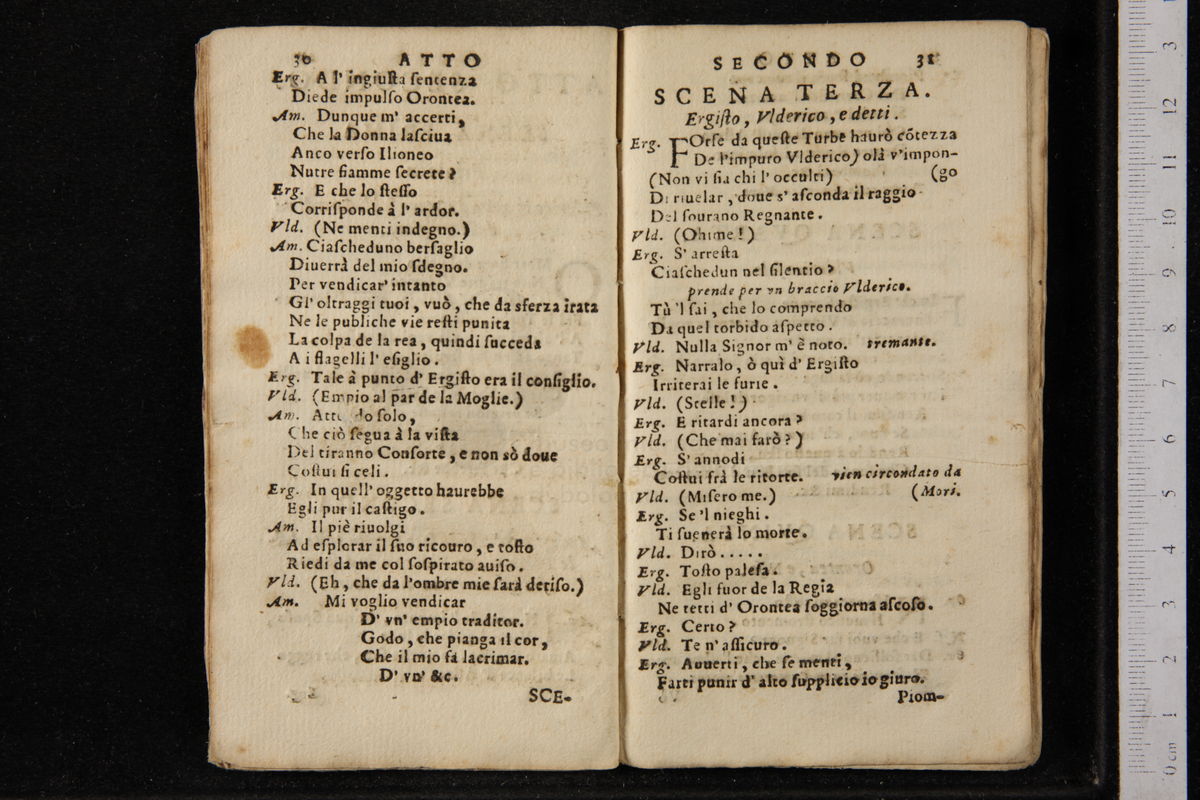 30 ATTO
Erg. A l' ingiuſta ſentenza
Diede impulſo Orontea.
Am. Dunque m' accerti,
Che la Donna laſciua
Anco verſo Ilioneo
Nutre fiamme ſecrete?
Erg. E che lo ſteſſo
Corriſponde à l' ardor.
Vld. (Ne menti indegno.)
Am. Ciaſcheduno berſaglio
Diuerrà del mio ſdegno.
Per vendicar' intanto
Gl' oltraggi tuoi, vuò, che da sferza irata
Ne le publiche vie reſti punita
La colpa de la rea, quindi ſucceda
A i flagelli l' eſiglio.
Erg. Tale à punto d' Ergiſto era il conſiglio.
Vld. (Empio al par de la Moglie.)
Am. Atte do ſolo,
Che ciò ſegua à la viſta
Del tiranno Conſorte, e non sò doue
Coſtui ſi celi.
Erg. In quell' oggetto haurebbe
Egli pur il caſtigo.
Am. Il piè riuolgi
Ad eſplorar il ſuo ricouro, e toſto
Riedi da me col ſoſpirato auiſo.
Vld. (Eh, che da l'ombre mie ſarà deriſo.)
Am. Mi voglio vendicar
D' vn' empio traditor.
Godo, che pianga il cor,
Che il mio fà lacrimar.
D' vn' &c.
SCE-
SECONDO 31
SCENA TERZA.
Ergiſto, Vlderico, e detti.
Erg. FOrſe da queſte Turbe haurò cõtezza
De l'impuro Vlderico) olà v'impon-
(Non vi ſia chi l' occulti) (go
Di riuelar, doue s' aſconda il raggio
Del ſourano Regnante.
Vld. (Ohime!)
Erg. S' arreſta
Ciaſchedun nel ſilentio?
prende per vn braccio Vlderico.
Tù 'l ſai, che lo comprendo
Da quel torbido aſpetto.
Vld. Nulla Signor m' è noto. tremante.
Erg. Narralo, ò quì d' Ergiſto
Irriterai le furie.
Vld. (Stelle!)
Erg. E ritardi ancora?
Vld. (Che mai farò?)
Erg. S' annodi
Coſtui frà le ritorte. vien circondato da
Vld. (Miſero me.) (Mori.
Erg. Se 'l nieghi.
Ti ſuenerà lo morte.
Vld. Dirò.....
Erg. Toſto paleſa.
Vld. Egli fuor de la Regia
Ne tetti d' Orontea ſoggiorna aſcoſo.
Erg. Certo?
Vld. Te n' aſſicuro.
Erg. Auuerti, che ſe menti,
Farti punir d' alto ſupplicio io giuro.
Piom-
0 cm 1 2 3 4 5 6 7 8 9 10 11 12 3